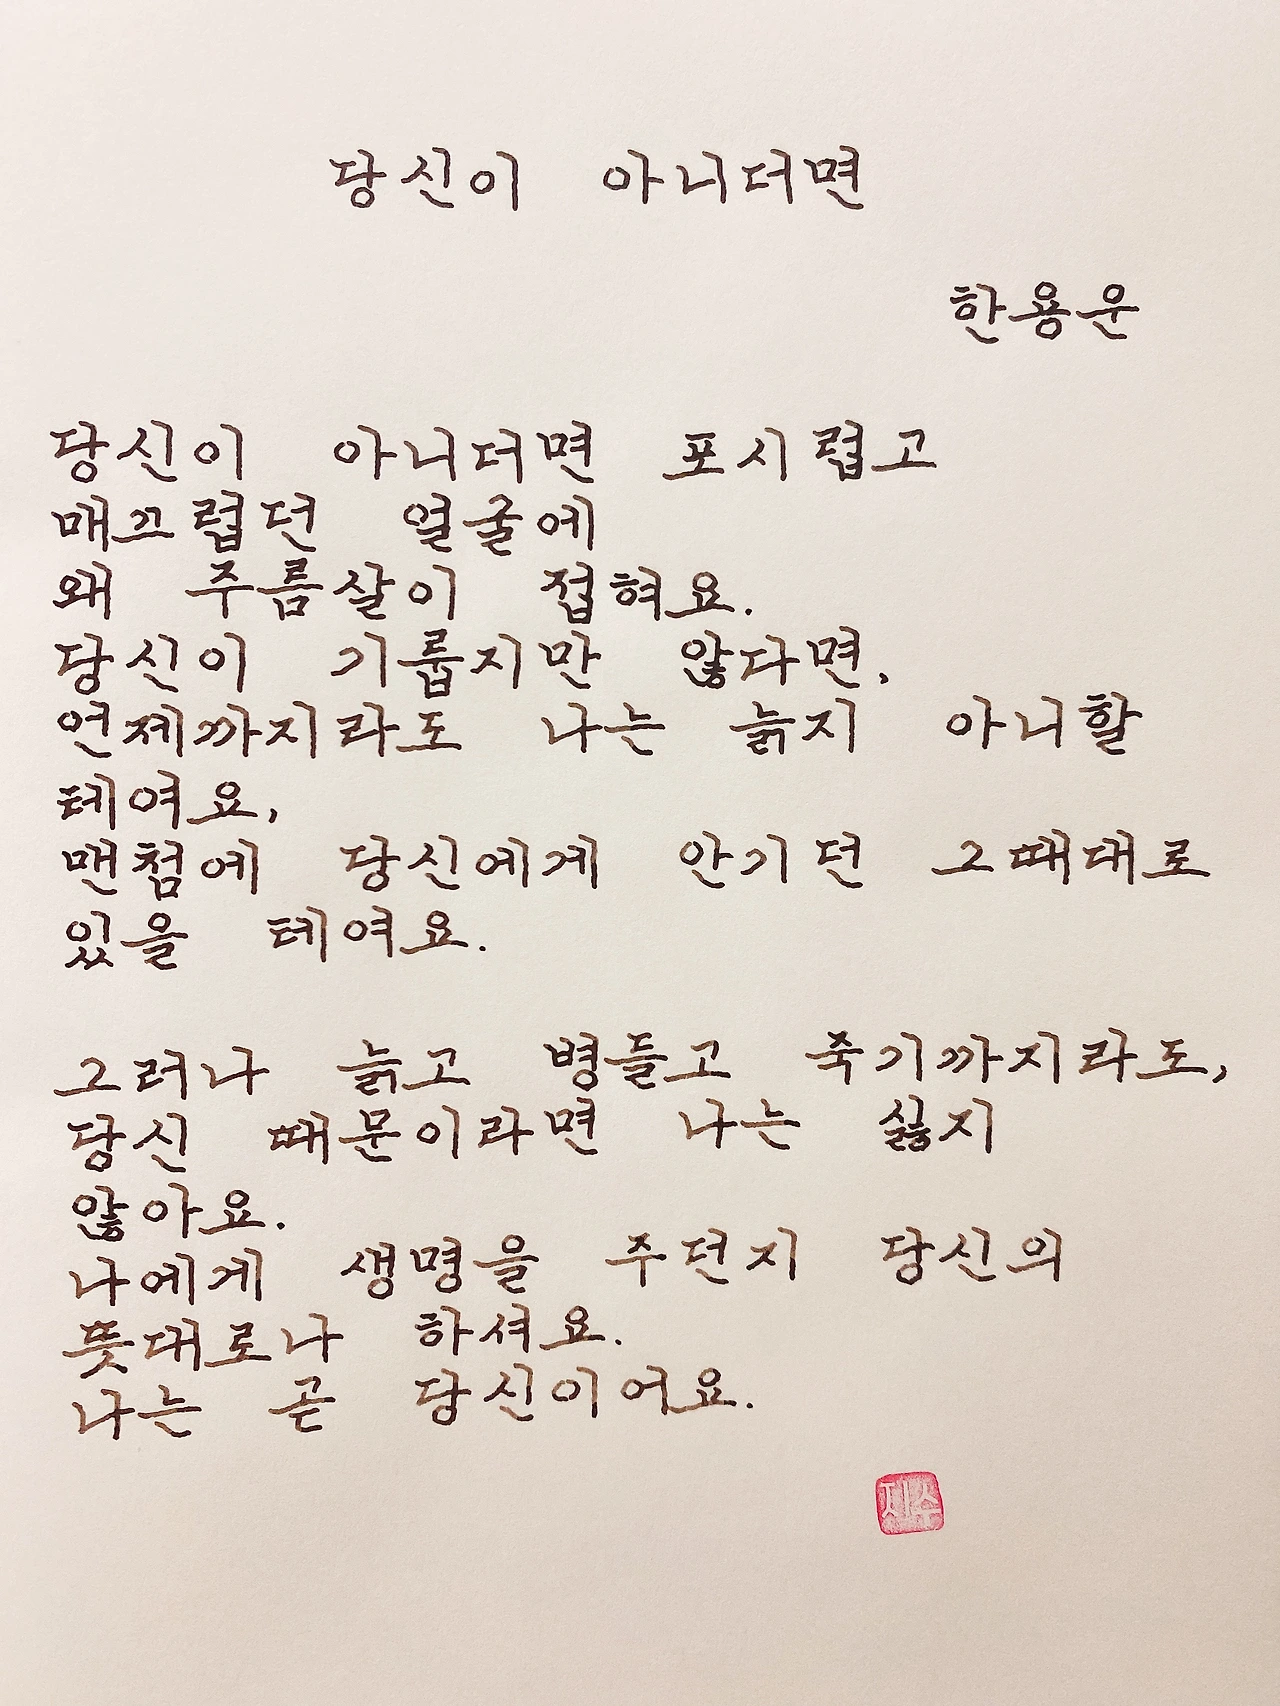 당신이 아니더면
한용운
당신이 아니더면 포시럽고
매끄럽던 얼굴에
왜 주름살이 접혀요.
당신이 기룹지만 않다면,
언제까지라도 나는 늙지 아니할
테여요,
맨첨에 당신에게 안기던 그때대로
있을 테여요.
그러나 늙고 병들고 죽기까지라도,
당신 때문이라면 나는 싫지
않아요.
나에게 생명을 주던지 당신의
뜻대로나 하셔요.
나는 곧 당신이어요.
제수